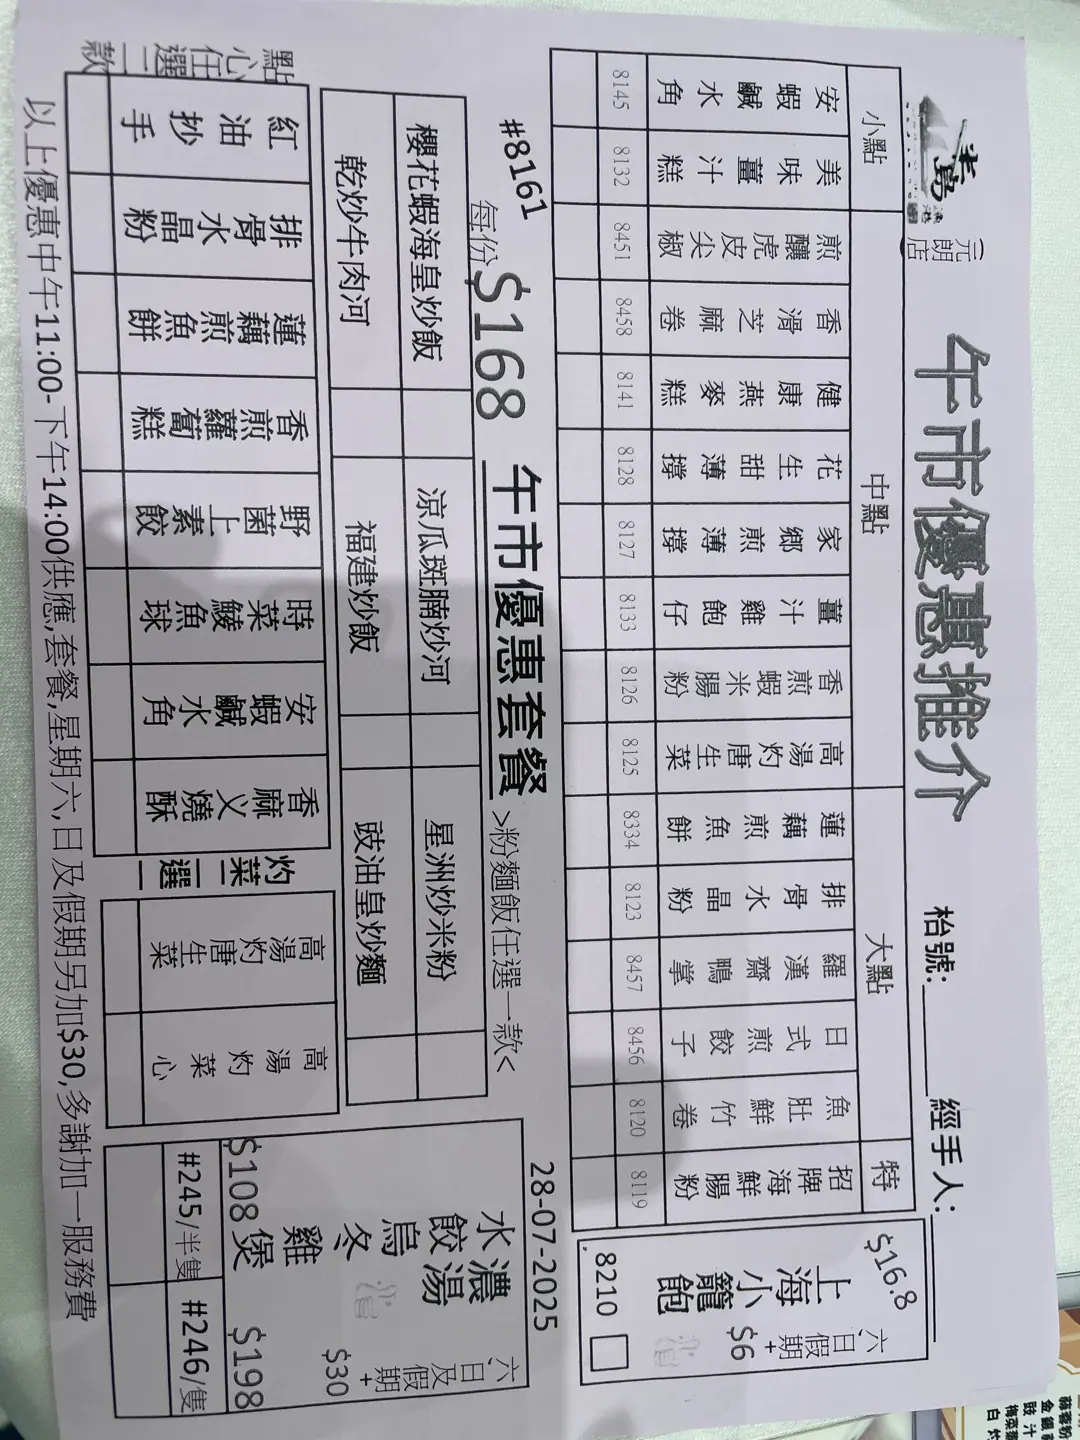 半島
漁港
(元朗店
午市優惠推介
枱號:
經手人:
小點
中點
大點
特
安蝦鹹水角
美味薑汁糕
煎釀虎皮尖椒
香滑芝麻卷
健康燕麥糕
花生甜薄撐
家鄉煎薄撐
薑汁雞飽仔
香煎蝦米腸粉
高湯灼唐生菜
蓮藕煎魚餅
排骨水晶粉
羅漢齋鴨掌
日式煎餃子
魚肚鮮竹卷
招牌海鮮腸粉
8145
8132
8451
8458
8141
8128
8127
8133
8126
8125
8334
8123
8457
8456
8120
8119
$16.8
上海小籠飽
六日假期+$6
8210
#8161
每份$168 午市優惠套餐 >粉麵飯任選一款<
28-07-2025
櫻花蝦海皇炒飯
涼瓜斑腩炒河
星洲炒米粉
乾炒牛肉河
福建炒飯
豉油皇炒麵
點心任選二款
紅油抄手
排骨水晶粉
蓮藕煎魚餅
香煎蘿蔔糕
野菌上素餃
時菜鯪魚球
安蝦鹹水角
香麻义燒酥
灼菜二選一
高湯灼唐生菜
高湯灼菜心
濃湯冬煲
水餃烏雞
六日及假期+$30
$108
$198
#245/半隻
#246/隻
以上優惠中午11:00-下午14:00供應,套餐,星期六,日及假期另加$30,多謝加一服務費
豉汁
白灼